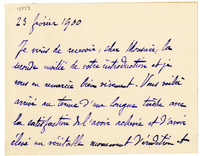 23 février 1900
Je viens de recevoir, cher Monsieur, la
seconde moitié de votre introduction et je
vous en remercie bien vivement. Vous voilà
arrivé au terme d'une longue tâche avec
la satisfaction de l'avoir achevée et d'avoir
élevé un véritable monument d'érudition et